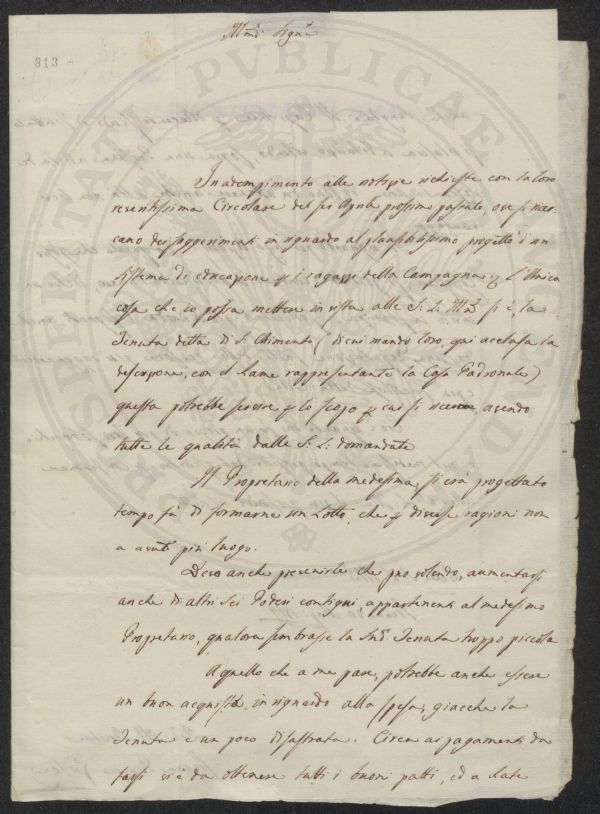 813
Illmi Signri
In adempimento alle notizie richieste con la loro
recentissima Circolare del sei Aprile prossimo passato, ove si ricercano
dei suggerimenti in riguardo al plausibilissimo progetto d'un
Sistema di educazione p i ragazzi della Campagna, L'Unica
cosa che io possa mettere in vista alle S. L. Ill si è, la
Tenuta detta di S. Chimento (di cui mando loro, qui acclusa la
descrizione, con il Rame rappresentante la Casa Padronale)
questa potrebbe servire p lo scopo p cui si ricerca, avendo
tutte le qualità dalle S. L. domandate
Il Proprietario della medesima, si era progettato
tempo fà di formarne un Lotto, che p diverse ragioni non
a avuto più luogo.
Devo anche prevenirle che può volendo, aumentarsi
anche di altri Sei Poderi contigui, appartenenti al medesimo
Proprietario, qualora sembrasse la Sud. Tenuta troppo piccola
A quello che a me pare, potrebbe anche essere
un buon acquisto, in riguardo alla spesa, giacchè la
Tenuta è un poco disastrata. Circa ai pagamenti da
farsi vi è da ottenere tutti i buoni patti, ed a rate
PVBLICAE
PROSPERITATI